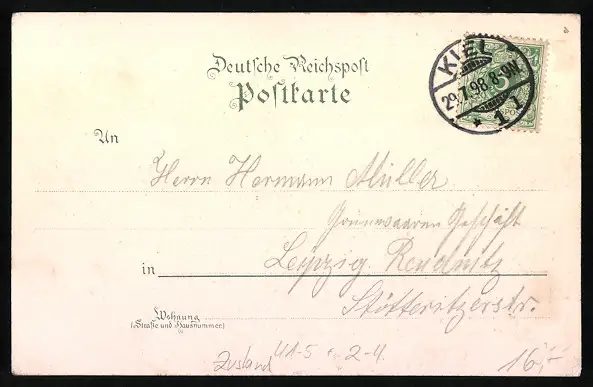 Deutsche Reichspost
Postkarte
KIEL
29.7.98.8-9N.
* 1.1
An
Herrn Hermann Müller
Grünwaaren Geschäft
in Leipzig Reudnitz
Stötteritzerstr.
Wohnung
(Straße und Hausnummer)
Zustand 41-5 2-4
16,-